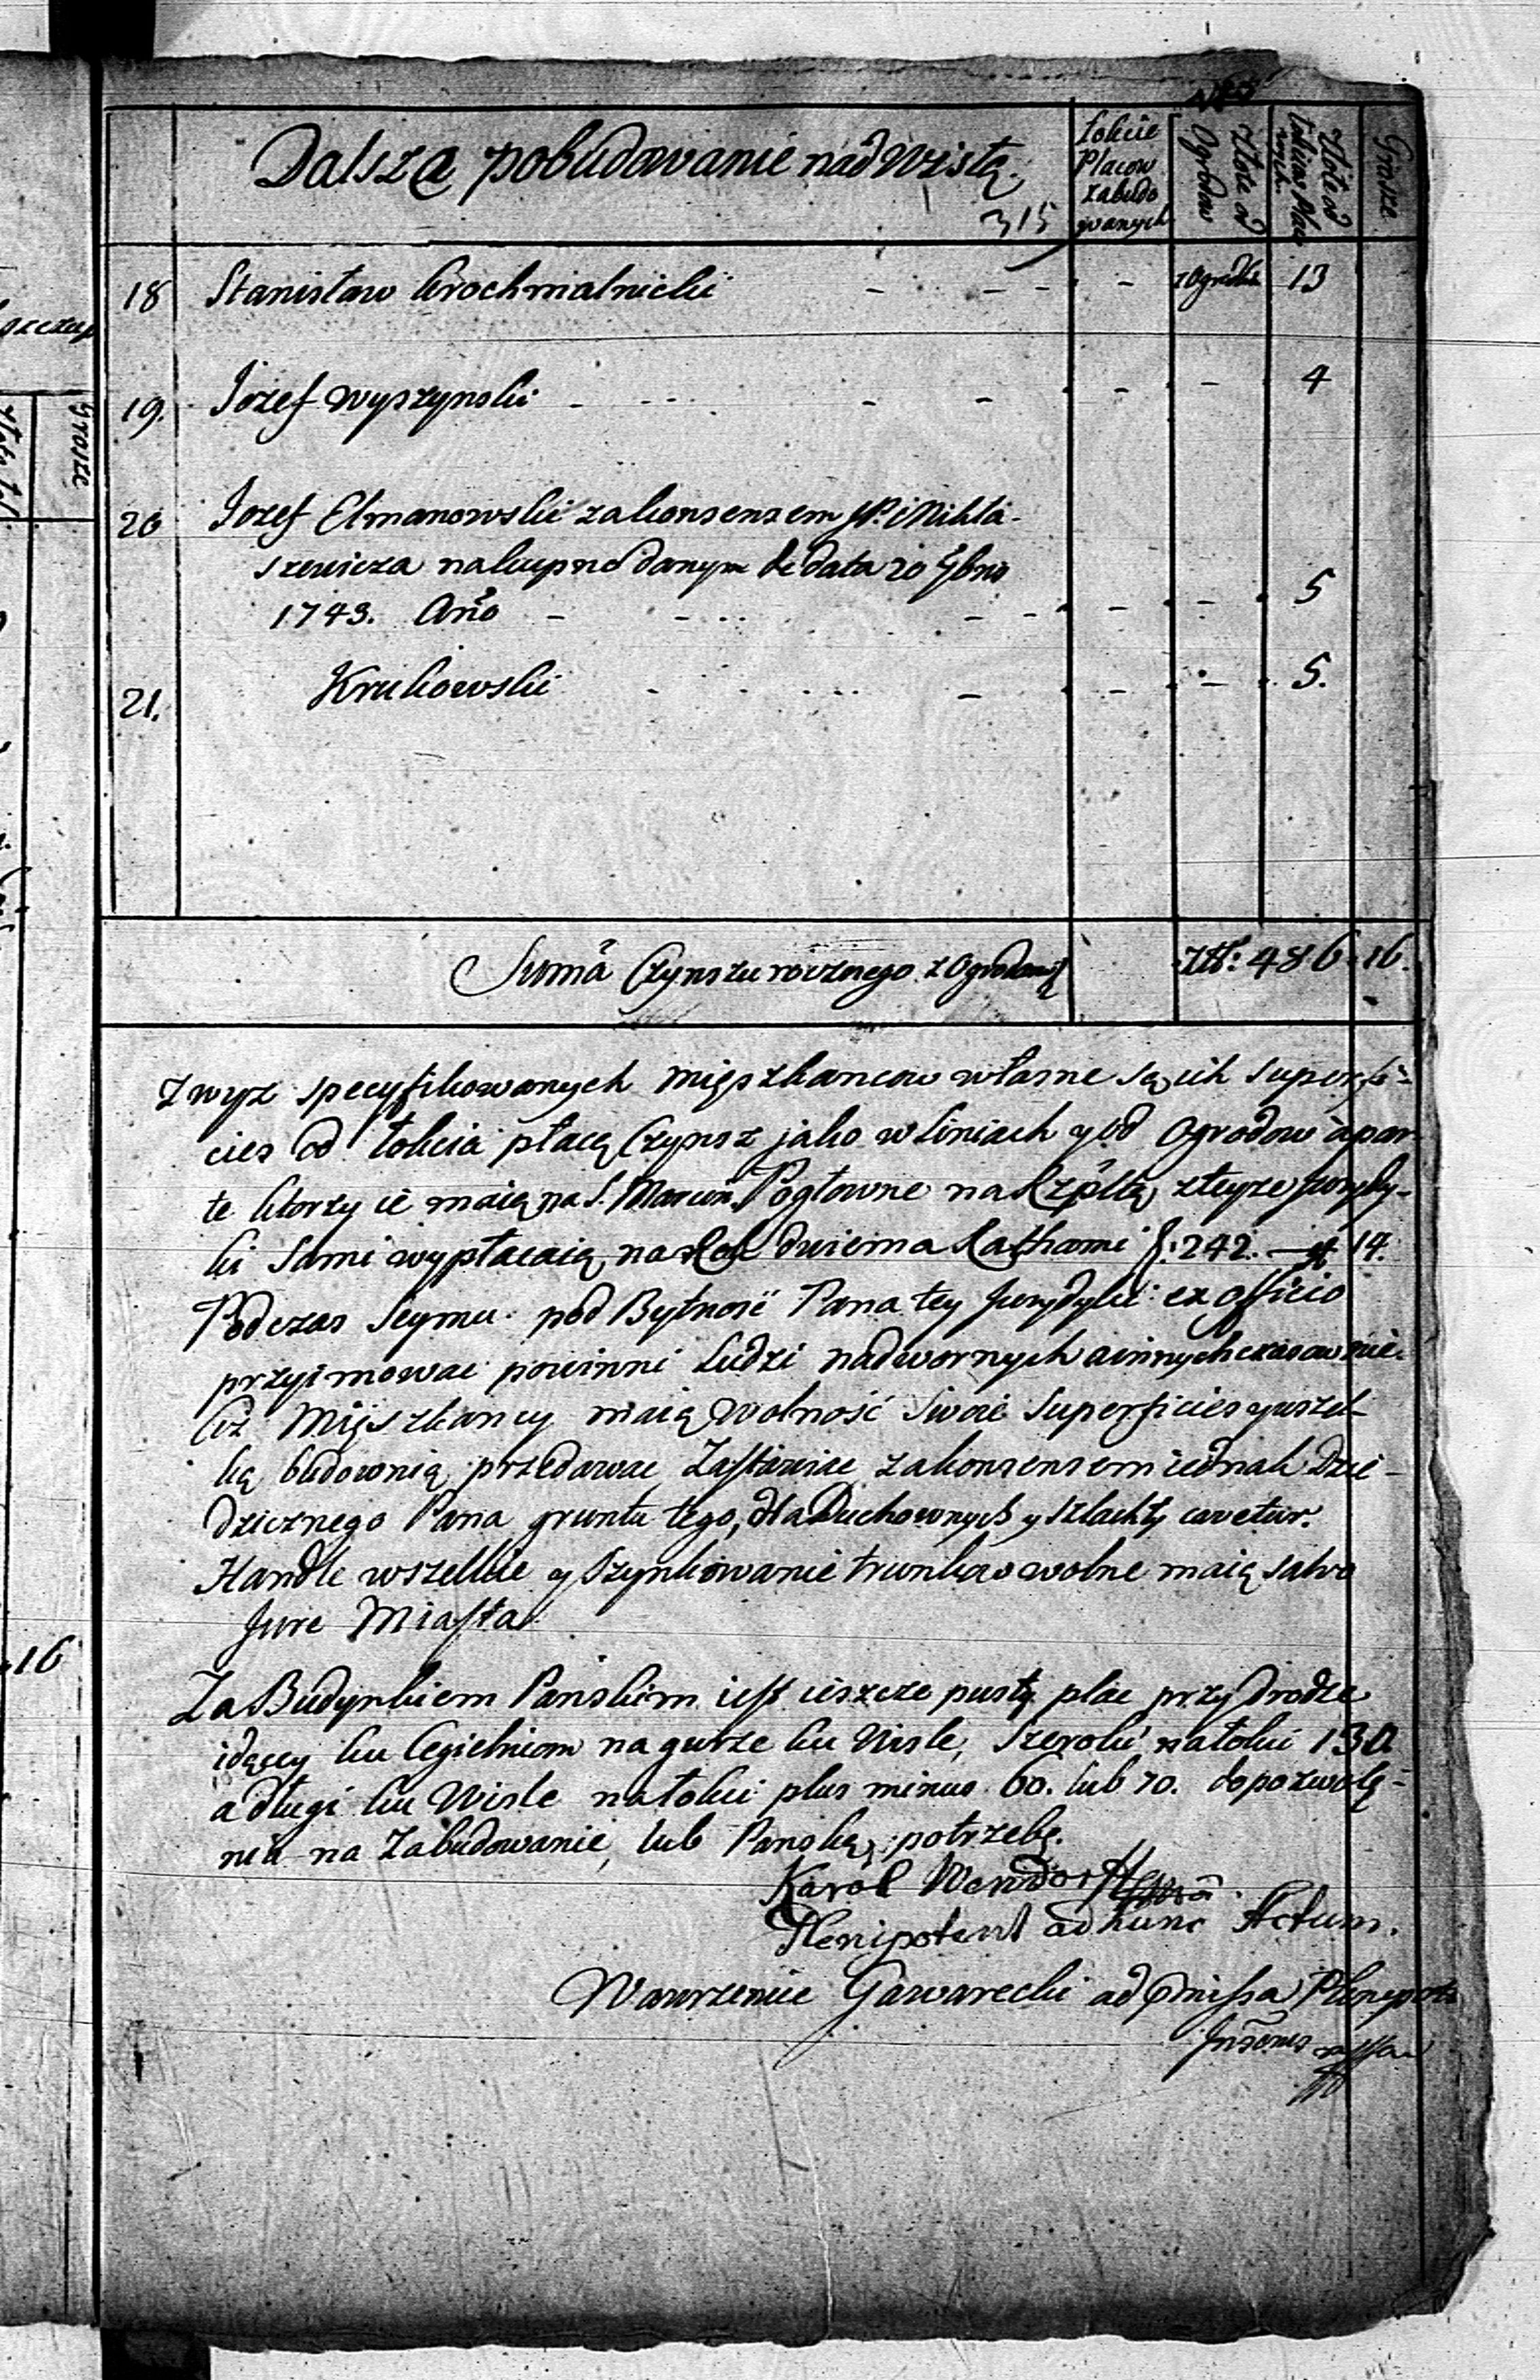 Dalsze pobudowanie nad Wisłą.
315
Łokcie
Placow
zabudo
wanych
Złote od
Ogrodow
Złote od
Grosze
18 Stanisław Krochmalnicki - - - - zOgrodk 13
19. Jozef Wyszynski - - - - - 4
20 Jozef Elmanowski zakonsensem JP. Mikła-
szewicza nakupno danym de data 20 9bris
1743. Año - - - - - 5
21. Krukowski - - - - 5.
Suma Czynszu rocznego z Ogrodami Złł: 486 16.
Zwyz specyfikowanych mięszkancow własne są ich superfi-
cies od łokcia płacą Czynsz jako w Liniach y od Ogrodow apar-
te ktorzy ie maią na S. Marcin. Pogłowne na Rzpltą zteyze Jurydy-
ki Sami wypłacaią na Rok dwiema Rathami f: 242. 14.
Podczas Seymu pod Bytnosć Pana tey Jurydyki ex officio
przyimowac powinni Ludzi nadwornych a innych czasow nie.
Ciz Mięszkancy maią wolność Swoie Superficies y wszel-
ką budownią przedawac Zastawiac zakonsensem iednak Dzie-
dzicznego Pana gruntu tego, dla Duchownych y Szlachty cavetur.
Handle wszelkie y Szynkowanie trunkow wolne maią salvo
Jure Miasta
Za Budynkiem Panskim iest ieszcze pusty plac przy drodze
idącey ku Cegielniom na gurze ku Wisle, Szeroki na łokci 130
a długi ku Wisle na łokci plus minus 60. lub 70. do pozwolę-
nia na Zabudowanie, lub Panską potrzebę.
Karol Wendorff
Plenipotent ad hunc Actum.
Wawrzeniec Gawarecki ad pmissa Plenipot